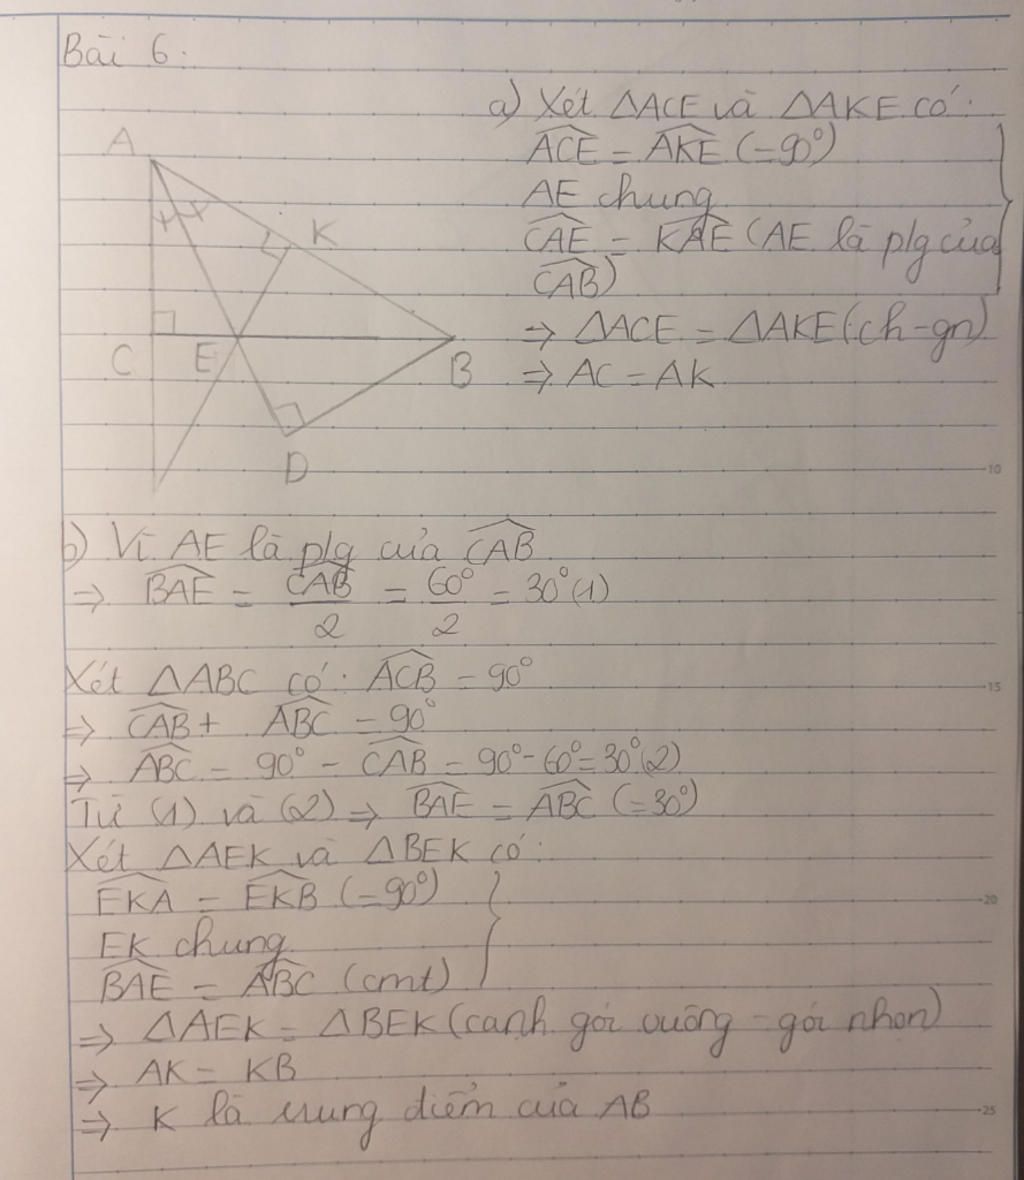 Bài 6:
a) Xét △ACE và △AKE có:
ACE = AKE (=90°)
AE chung
CAE = KAE (AE là p/g của
CAB)
⇒ △ACE = △AKE (ch-gn)
⇒ AC = AK
A
K
C
E
B
D
b) Vì AE là p/g của CAB
⇒ BAE = CAB/2 = 60°/2 = 30° (1)
Xét △ABC có: ACB = 90°
⇒ CAB + ABC = 90°
⇒ ABC = 90° - CAB = 90° - 60° = 30° (2)
Từ (1) và (2) ⇒ BAE = ABC (=30°)
Xét △AEK và △BEK có:
EKA = EKB (=90°)
EK chung
BAE = ABC (cmt)
⇒ △AEK = △BEK (cạnh gói vuông - gói nhọn)
⇒ AK = KB
⇒ K là trung điểm của AB
10
15
20
25